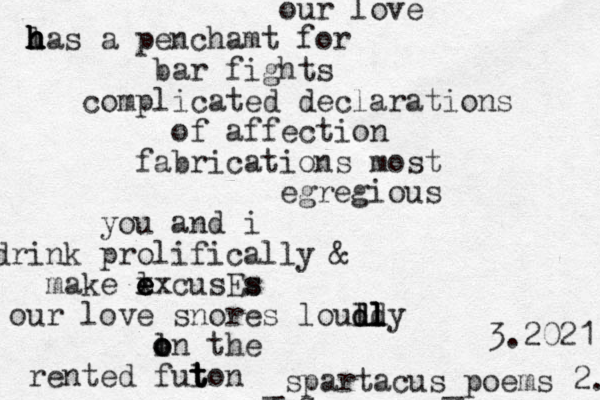 our love
has a penchamt for
bar fights
complicated declarations
of affection
fabrications most
egregious
you and i
drink prolifically &
make excusEs
our love snores loudly
on the
rented futon
3.2021
_spartacus_poems 2.